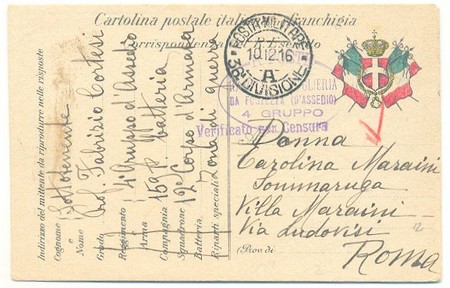 Cartolina postale italiana in franchigia
Corrispondenza del R. Esercito
POSTA MILITARE
10.12.16
A
36ª DIVISIONE
DA FORTEZZA (D'ASSEDIO)
4 GRUPPO
Verificato per Censura
Donna
Carolina Maraini
Sommaruga
Villa Maraini
Via Ludovisi
(Prov. di
Roma
12
Indirizzo del mittente da riprodurre nelle risposte
Cognome
Nome
Grado
Reggimento
Arma
Compagnia
Squadrone
Batteria
Riparti speciali
Sottotenente
Fabrizio Cortesi
4º Gruppo d'Assedio
159ª batteria
12º Corpo d'Armata
Zona di guerra